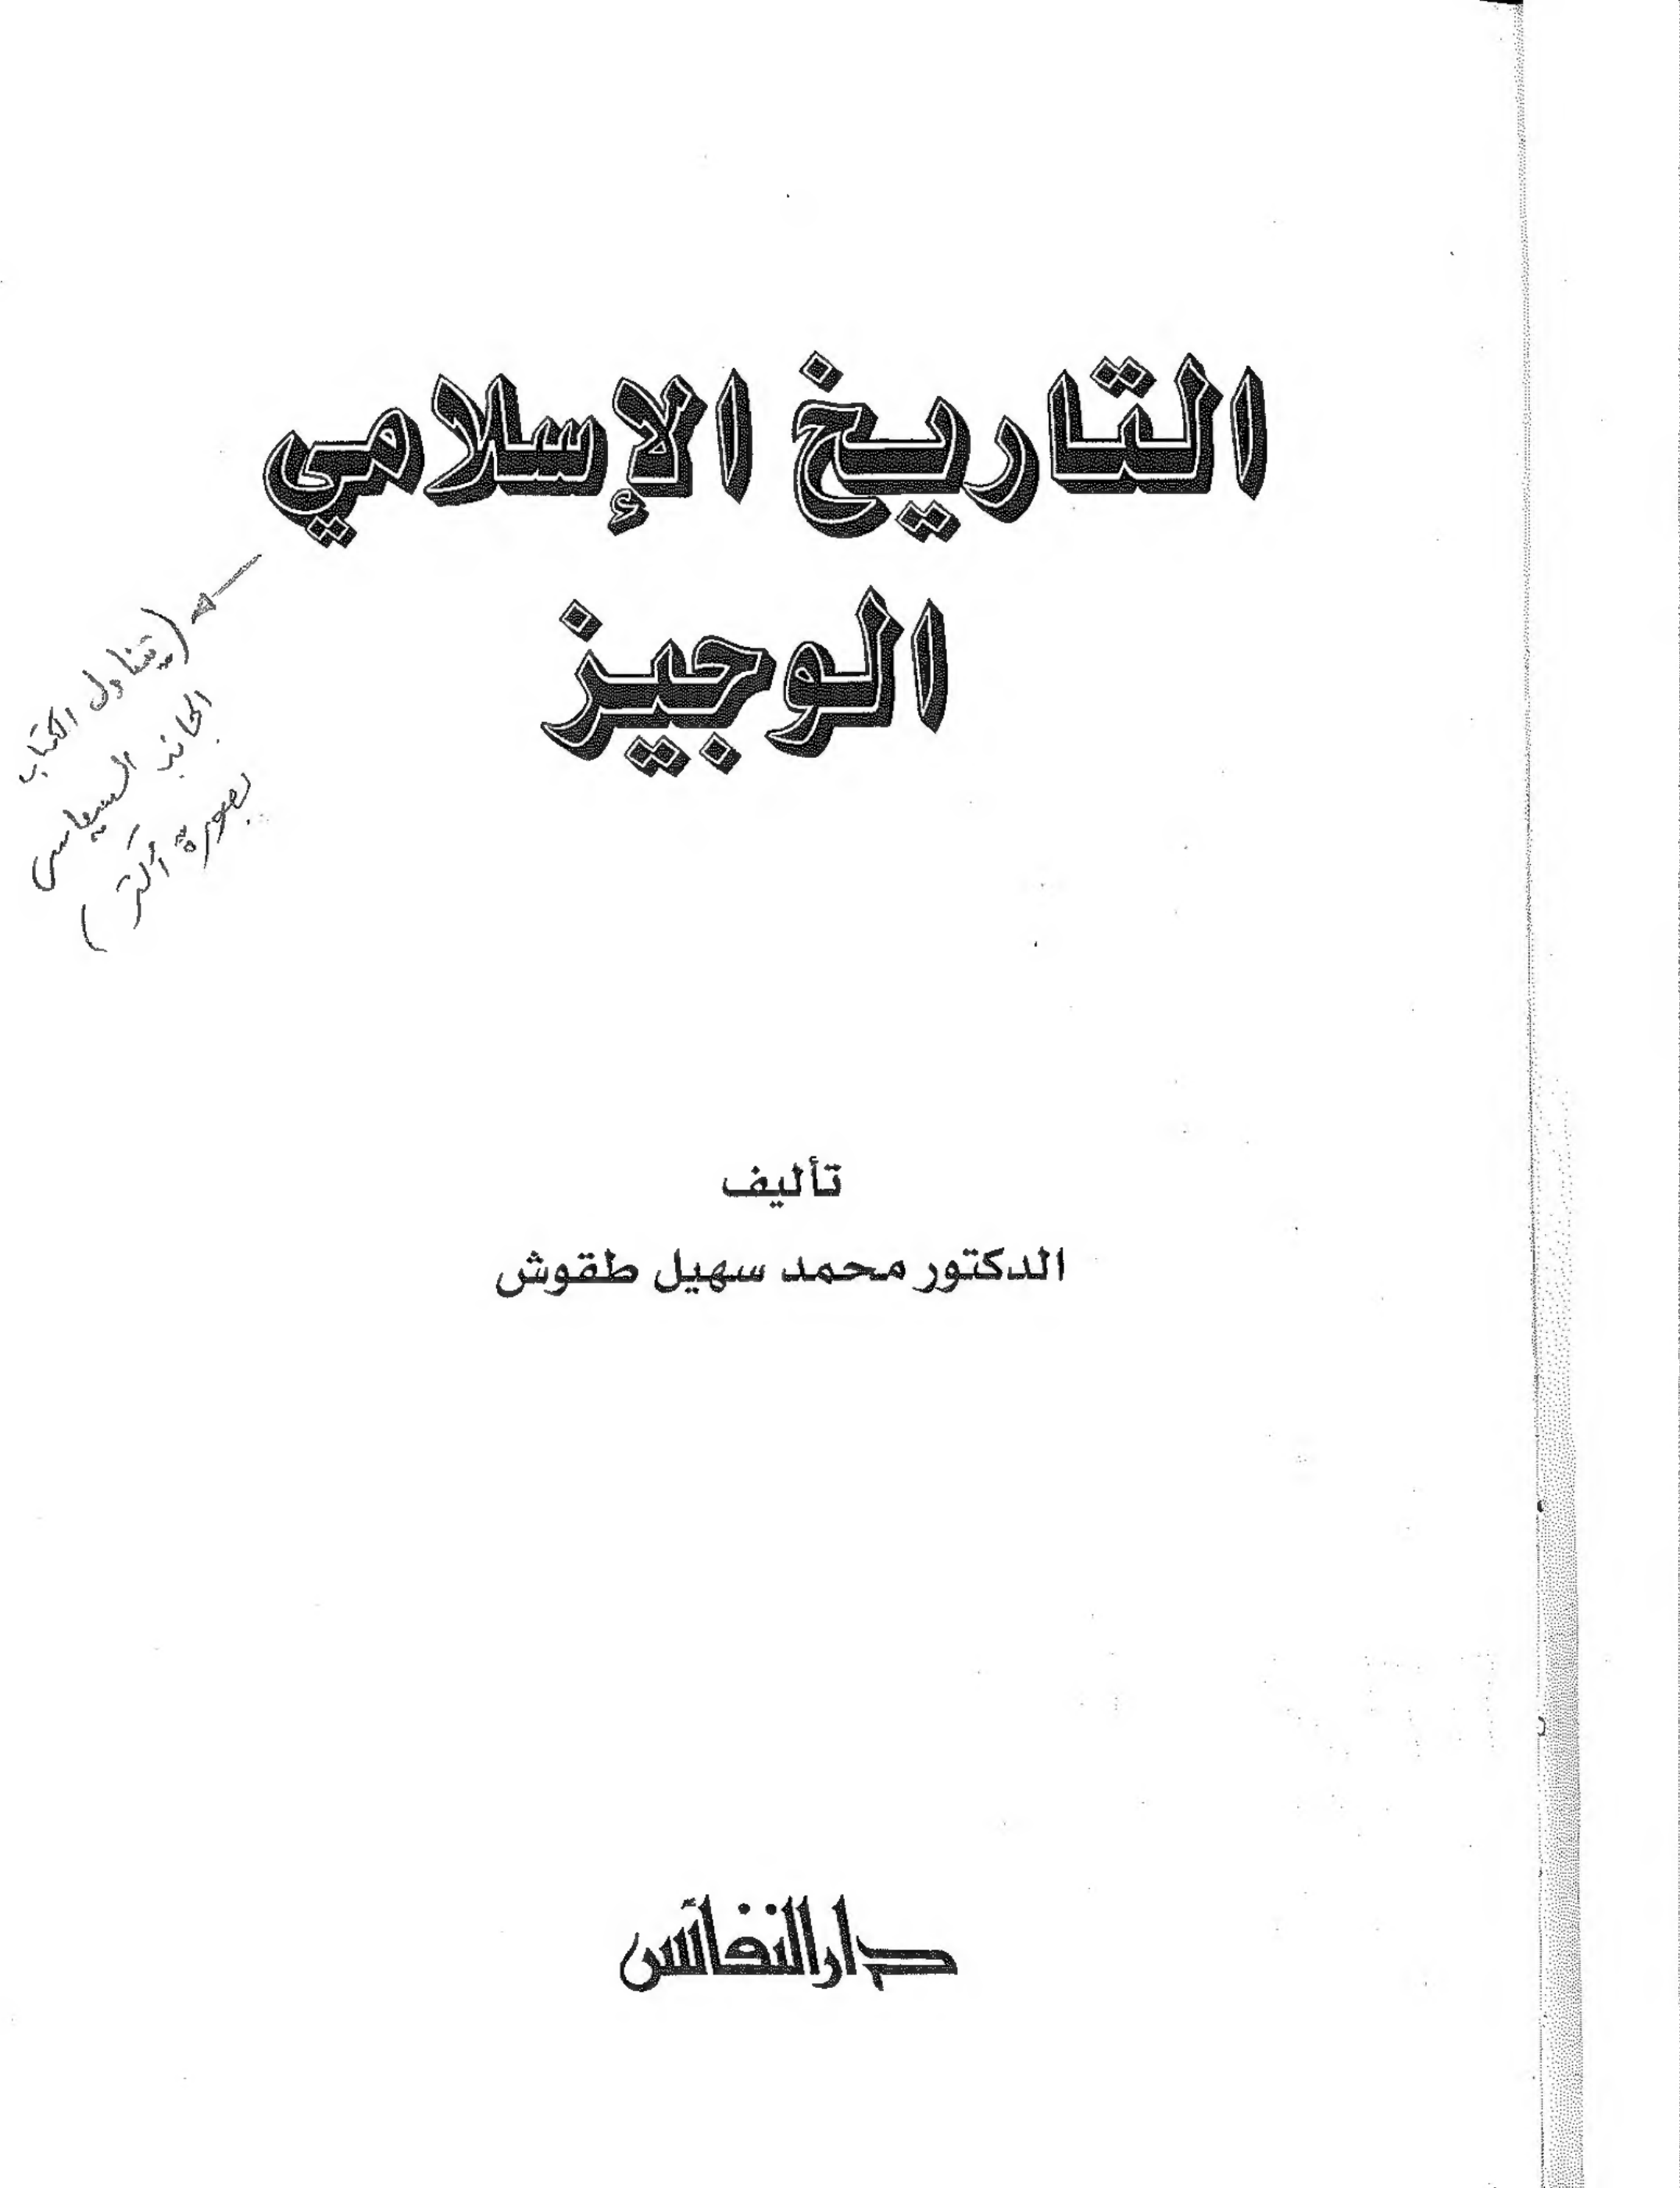 التاريخ الإسلامي
الوجيز
(يتناول الكتاب
الجانب السياسى
بصورة أكثر)
تأليف
الدكتور محمد سهيل طقوش
دار النفائس